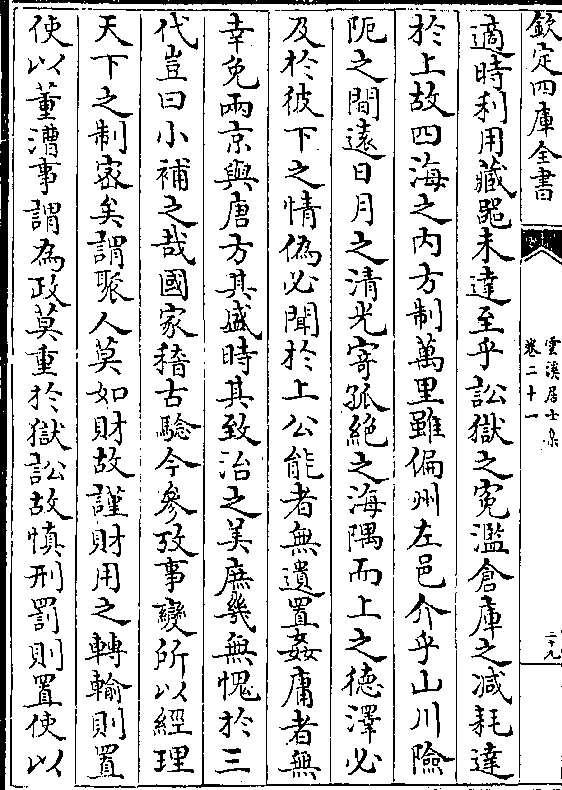 欽定四庫全書
雲溪居士集
卷二十一
二九
適時利用藏器未達至乎訟獄之寃濫倉庫之減耗達
於上故四海之内方制萬里雖偏州左邑介乎山川險
阨之間遠日月之清光寄孤絶之海隅而上之徳澤必
及於彼下之情偽必聞於上公能者無遺置姦庸者無
幸免兩京與唐方其盛時其致治之美庶幾無愧於三
代豈曰小補之哉國家稽古驗今參攷事變所以經理
天下之制宻矣謂聚人莫如財故謹財用之轉輸則置
使以董漕事謂為政莫重於獄訟故慎刑罰則置使以